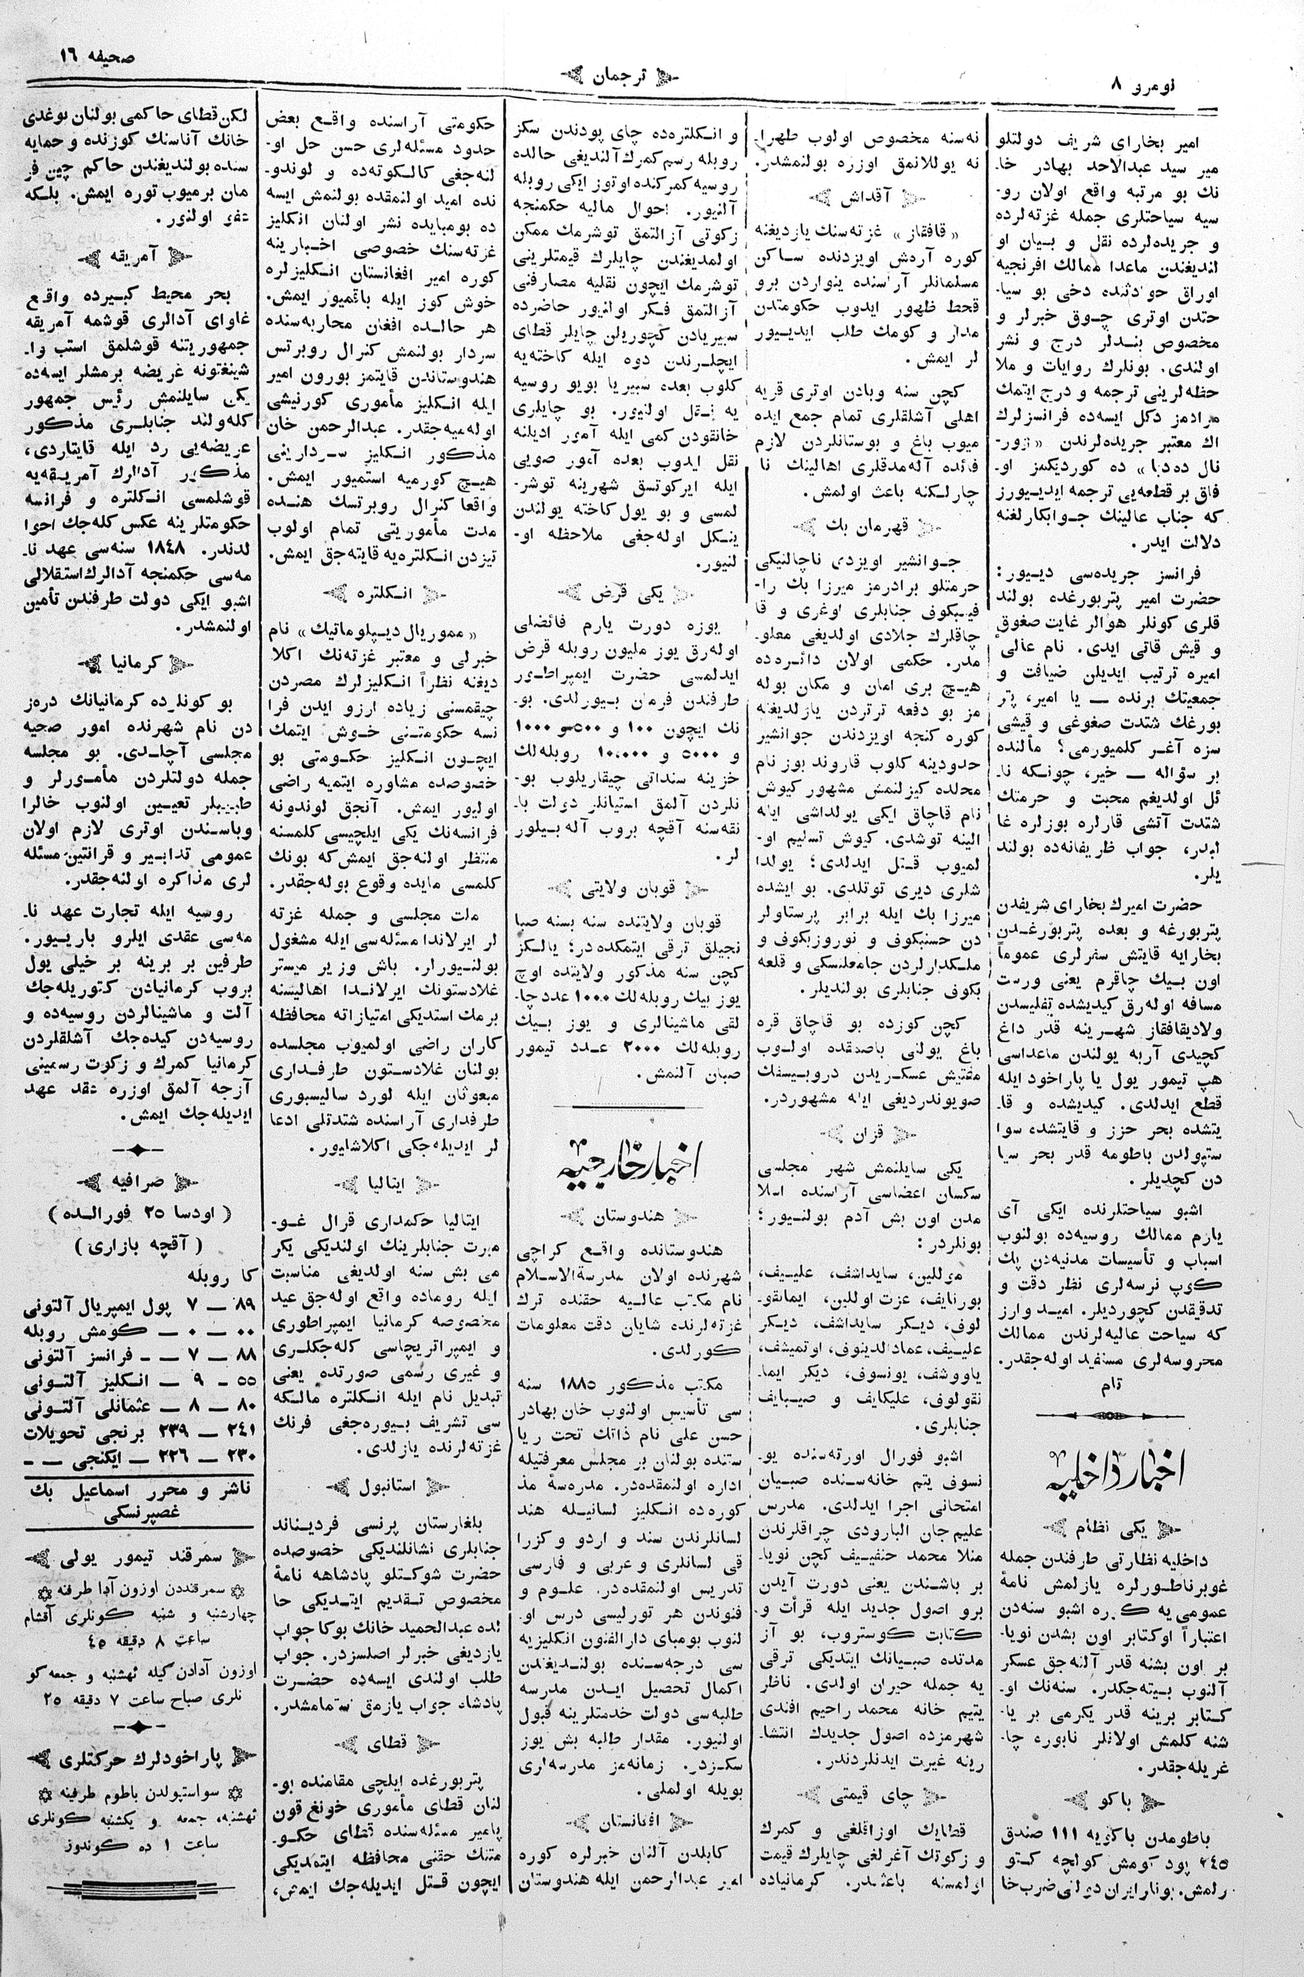 نومرو ٨
ترجمان
صحیفه ١٦
امیر بخارای شریف دولتلو
میر سید عبدالاحد بهادر خا-
نك بو مرتبه واقع اولان رو-
سیه سیاحتلری جمله غزته‌لرده
و جریده‌لرده نقل و بیان او
لندیغندن ماعدا ممالك افرنجیه
اوراق حوادثنده دخی بو سیا-
حتدن اوتری چوق خبرلر و
مخصوص بندلر درج و نشر
اولندی. بونلرك روایات و ملا
حظه‌لرینی ترجمه و درج ایتمك
مرادمز دکل ایسه‌ده فرانسزلرك
اك معتبر جریده‌لرندن «ژور-
نال ده‌دبا» ده کوردیکمز او-
فاق بر قطعه‌یی ترجمه ایدییورز
که جناب عالینك جوابکارلغنه
دلالت ایدر.
فرانسز جریده‌سی دییور:
حضرت امیر پتربورغده بولند
قلری کونلر هوالر غایت صغوق
و قیش قاتی ایدی. نام عالئ
امیره ترتیب ایدیلن ضیافت و
جمعیتك برنده — یا امیر، پتر
بورغك شتدت صغوغی و قیشی
سزه آغر کلمیورمی؟ مألنده
بر سؤاله — خیر، چونکه نا-
ئل اولدیغم محبت و حرمتك
شتدت آتشی قارلره بوزلره غا
لبدر، جواب ظریفانه‌ده بولند
یلر.
حضرت امیرك بخارای شریفدن
پتربورغه و بعده پتربورغدن
بخارایه قایتش سفرلری عموماً
اون بیك چاقرم یعنی ورست
مسافه اوله‌رق کیدیشده تفلیسدن
ولادیقافقاز شهرینه قدر داغ
کچیدی آربه یولندن ماعداسی
هپ تیمور یول یا پاراخود ایله
قطع ایدلدی. کیدیشده و قا-
یتشده بحر حزز و قایتشد، سوا
ستپولدن باطومه قدر بحر سیا
دن کچدیلر.
اشبو سیاحتلرنده ایکی آی
یارم ممالك روسیه‌ده بولنوب
اسباب و تأسیسات مدنیه‌دن پك
کوپ نرسه‌لری نظر دقت و
تدقیقدن کچوردیلر. امید وارز
که سیاحت عالیه‌لرندن ممالك
محروسه‌لری مستفید اوله‌جقدر.
تام
اخبار داخلیه
یکی نظام
داخلیه نظارتی طرفندن جمله
غوبرناطورلره یازلمش نامهٔ
عمومی‌یه کوره اشبو سنه‌دن
اعتباراً اوکتابر اون بشدن نویا-
بر اون بشنه قدر آلنه‌جق عسکر
آلنوب بیته‌جکدر. سنه‌نك او-
کتابر برینه قدر یکرمی بر یا-
شنه کلمش اولانلر نابوره چا-
غریله‌جقدر.
باکو
باطومدن باکویه ١١١ صندق
٢٤٥ پود کومش کولچه کتو
رلمش. بونلر ایران دولتی ضرب‌خا
نه‌سنه مخصوص اولوب طهرا-
نه یوللانمق اوزره بولنمشدر.
آقداش
«قافقاز» غزته‌سنك یازدیغنه
کوره آره‌ش اویزدنده ساکن
مسلمانلر آراسنده ینواردن برو
قحط ظهور ایدوب حکومتدن
مدار و کومك طلب ایدییور
لر ایمش.
کچن سنه وبادن اوتری قریه
اهلی آشلقلری تمام جمع ایده
میوب باغ و بوستانلردن لازم
فائده آله‌مدقلری اهالینك نا
چارلکنه باعث اولمش.
قهرمان بك
جوانشیر اویزدی ناچالنیکی
حرمتلو برادرمز میرزا بك را-
فیبکوف جنابلری اوغری و قا
چاقلرك جلادی اولدیغی معلو-
مدر. حکمی اولان دائره‌ده
هیچ بری امان و مکان بوله
مز بو دفعه ترتردن یازلدیغنه
کوره کنجه اویزدندن جوانشیر
حدودینه کلوب قاروند بوز نام
محلده کیزلنمش مشهور کیوش
نام قاچاق ایکی یولداشی ایله
الینه توشدی. کیوش تسلیم او-
لمیوب قتل ایدلدی؛ یولدا
شلری دیری توتلدی. بو ایشده
میرزا بك ایله برابر پرستاولر
دن حسنبکوف و نوروزبکوف و
ملکدارلردن جامعلنسکی و قلعه
بکوف جنابلری بولندیلر.
کچن کوزده بو قاچاق قره
باغ یولنی باصدقده اولوب
مفتیش عسکریدن دروبیسفك
صویوندردیغی ایله مشهوردر.
قزان
یکی سایلنمش شهر مجلسی
سکسان اعضاسی آراسنده اسلا
مدن اون بش آدم بولنیور؛
بونلردر:
موللین، سایداشف، علییف،
بورنایف، عزت اوللین، ایمانقو-
لوف، دیکر سایداشف، دیکر
علییف، عمادالدینوف، اوتمیشف،
یاووشف، یونسوف، دیکر ایما-
نقولوف، علیکایف و صبایف
جنابلری.
اشبو فورال اورته‌سنده یو-
نسوف یتم خانه‌سنده صبیان
امتحانی اجرا ایدلدی. مدرس
علیم‌جان البارودی چراقلرندن
منلا محمد حنفیف کچن نویا-
بر باشندن یعنی دورت آیدن
برو اصول جدید ایله قرأت و
کتابت کوستروب، بو آز
مدتده صبیانك ایتدیکی ترقی
یه جمله حیران اولدی. ناظر
یتیم خانه محمد رحیم افندی
شهرمزده اصول جدیدك انتشا-
رینه غیرت ایدنلردندر.
چای قیمتی
قطاینك اوزاقلغی و کمرك
و زکوتك آغرلغی چایلرك قیمت
اولمسنه باعثدر. کرمانیاده
و انکلتره‌ده چای پودندن سکز
روبله رسم کمرك آلندیغی حالده
روسیه کمرکنده اوتوز ایکی روبله
آلنیور. احوال مالیه حکمنجه
زکوتی آزالتمق توشرمك ممکن
اولمدیغندن چایلرك قیمتلرینی
توشرمك ایچون نقلیه مصارفنی
آزالتمق فکر اولنیور حاضرده
سیبریادن کچوریلن چایلر قطای
ایچلرندن دوه ایله کاختیه‌یه
کلوب بعده سیبریا بویو روسیه
یه نقل اولنیور. بو چایلری
خانقودن کمی ایله آمور ادیلنه
نقل ایدوب بعده آمور صویی
ایله ایرکوتسق شهرینه توشر-
لمسی و بو یول کاخته یولندن
ینکل اوله‌جغی ملاحظه او-
لنیور.
یکی قرض
یوزه دورت یارم فائضلی
اوله‌رق یوز ملیون روبله قرض
ایدلمسی حضرت ایمپراطور
طرفندن فرمان بیورلدی. بو-
نك ایچون ١٠٠ و ٥٠٠ و ١٠٠٠
و ٥٠٠٠ و ١٠٠٠٠ روبله‌لك
خزینه سنداتی چیقاریلوب بو-
نلردن آلمق استیانلر دولت با-
نقه‌سنه آقچه بروب آله‌بیلور
لر.
قوبان ولایتی
قوبان ولایتنده سنه بسنه صبا
نجیلق ترقی ایتمکده‌در؛ یالکز
کچن سنه مذکور ولایتده اوچ
یوز بیك روبله‌لك ١٠٠٠ عدد چا-
لقی ماشینالری و یوز بیك
روبله‌لك ٢٠٠٠ عدد تیمور
صبان آلنمش.
اخبار خارجیه
هندوستان
هندوستانده واقع کراچی
شهرنده اولان مدرسة الاسلام
نام مکتب عالیه حقنده ترك
غزته‌لرنده شایان دقت معلومات
کورلدی.
مکتب مذکور ١٨٨٥ سنه
سی تأسیس اولنوب خان بهادر
حسن علی نام ذاتك تحت ریا
ستنده بولنان بر مجلس معرفتیله
اداره اولنمقده‌در. مدرسهٔ مذ
کوره‌ده انکلیز لسانیله هند
لسانلرندن سند و اردو و کزرا
قی لسانلری و عربی و فارسی
تدریس اولنمقده‌در. علوم و
فنوندن هر تورلیسی درس او-
لنوب بومبای دارالفنون انکلیزیه
سی درجه‌سنده بولندیغندن
اکمال تحصیل ایدن مدرسه
طلبه‌سی دولت خدمتلرینه قبول
اولنیور. مقدار طلبه بش یوز
سکزدر. زمانه‌مز مدرسه‌لری
بویله اولملی.
افغانستان
کابلدن آلنان خبرلره کوره
امیر عبدالرحمن ایله هندوستان
حکومتی آراسنده واقع بعض
حدود مسئله‌لری حسن حل او-
لنه‌جغی کالکوته‌ده و لوندو-
نده امید اولنمقده بولنمش ایسه
ده بومبایده نشر اولنان انکلیز
غزته‌سنك خصوصی اخبارینه
کوره امیر افغانستان انکلیزلره
خوش کوز ایله باقمیور ایمش.
هر حالده افغان محاربه‌سنده
سردار بولنمش کنرال روبرتس
هندوستاندن قایتمز بورون امیر
ایله انکلیز مأموری کورنیشی
اوله‌میه‌جقدر. عبدالرحمن خان
مذکور انکلیز سردارینی
هیچ کورمیه استمیور ایمش.
واقعا کنرال روبرتسك هنده
مدت مأموریتی تمام اولوب
تیزدن انکلتره‌یه قایته‌جق ایمش.
انکلتره
«مموریال دیپلوماتیك» نام
خبرلی و معتبر غزته‌نك اکلا
دیغنه نظراً انکلیزلرك مصردن
چیقمسنی زیاده ارزو ایدن فرا
نسه حکومتنی خوش ایتمك
ایچون انکلیز حکومتی بو
خصوصده مشاوره ایتمیه راضی
اولیور ایمش. آنجق لوندونه
فرانسه‌نك یکی ایلچیسی کلمسنه
منتظر اولنه‌جق ایمش‌که بونك
کلمسی مایده وقوع بوله‌جقدر.
ملت مجلسی و جمله غزته
لر ایرلاندا مسئله‌سی ایله مشغول
بولنیورلر. باش وزیر میستر
غلادستونك ایرلاندا اهالیسنه
برمك استدیکی امتیازاته محافظه
کاران راضی اولمیوب مجلسده
بولنان غلادستون طرفداری
مبعوثان ایله لورد سالیسبوری
طرفداری آراسنده شتدتلی ادعا
لر ایدیله‌جکی اکلاشلیور.
ایتالیا
ایتالیا حکمداری قرال غو-
مبرت جنابلرینك اولندیکی یکر
می بش سنه اولدیغی مناسبت
ایله روماده واقع اوله‌جق عید
مخصوصه کرمانیا ایمپراطوری
و ایمپراتریچاسی کله‌جکلری
و غیری رسمی صورتده یعنی
تبدیل نام ایله انکلتره مالکه
سی تشریف بیوره‌جغی فرنك
غزته‌لرنده یازلدی.
استانبول
بلغارستان پرنسی فردیناند
جنابلری نشانلندیکی خصوصده
حضرت شوکتلو پادشاهه نامهٔ
مخصوص تقدیم ایتدیکی حا
لده عبدالحمید خانك بوکا جواب
یازدیغی خبرلر اصلسزدر. جواب
طلب اولندی ایسه‌ده حضرت
پادشاه جواب یازمق استمامشدر.
قطای
پتربورغده ایلچی مقامنده بو-
لنان قطای مأموری خونغ قون
پامیر مسئله‌سنده قطای حکو-
متنك حقنی محافظه ایتمدیکی
ایچون قتل ایدیله‌جك ایمش،
لکن قطای حاکمی بولنان بوغدی
خانك آناسنك کوزنده و حمایه
سنده بولندیغندن حاکم چین فر
مان برمیوب توره ایمش. بلکه
عفو اولنور.
آمریقه
بحر محیط کبیرده واقع
غاوای آدالری قوشمه آمریقه
جمهوریتنه قوشلمق استب وا-
شینغتونه غریضه برمشلر ایسه‌ده
یکی سایلنمش رئیس جمهور
کله‌ولند جنابلری مذکور
عریضه‌یی رد ایله قایتاردی،
مذکور آدالرك آمریقه‌یه
قوشلمسی انکلتره و فرانسه
حکومتلرینه عکس کله‌جك احوا
لدندر. ١٨٤٨ سنه‌سی عهد نا-
مه‌سی حکمنجه آدالرك استقلالی
اشبو ایکی دولت طرفندن تأمین
اولنمشدر.
کرمانیا
بو کونلرده کرمانیانك درەز
دن نام شهرنده امور صحیه
مجلسی آچلدی. بو مجلسه
جمله دولتلردن مأمورلر و
طبیبلر تعیین اولنوب خالرا
وباسندن اوتری لازم اولان
عمومی تدابیر و قرانتین مسئله
لری مذاکره اولنه‌جقدر.
روسیه ایله تجارت عهد نا-
مه‌سی عقدی ایلرو باریور.
طرفین بر برینه بر خیلی یول
بروب کرمانیادن کتوریله‌جك
آلت و ماشینالردن روسیه‌ده و
روسیه‌دن کیده‌جك آشلقلردن
کرمانیا کمرك و زکوت رسمینی
آزجه آلمق اوزره عقد عهد
ایدیله‌جك ایمش.
صرافیه
(اودسا ٢٥ فورالده)
(آقچه بازاری)
کا روبله
٨٩ — ٧ پول ایمپریال آلتونی
٠٠ — ٠ — کومش روبله
٨٨ — ٧ — - فرانسز آلتونی
٥٥ - ٩ — انکلیز آلتونی
٨٠ — ٨ — عثمانلی آلتونی
٢٤١ — ٢٣٩ برنجی تحویلات
٢٣٠ — ٢٢٦ — ایکنجی — -
ناشر و محرر اسماعیل بك
غصپرنسکی
سمرقند تیمور یولی
سمرقنددن اوزون آدا طرفنه
چهارشنبه و شنبه کونلری آقشام
ساعت ٨ دقیقه ٤٥
اوزون آدادن کیله ثهشنبه و جمعه کو
نلری صباح ساعت ٧ دقیقه ٢٥
پاراخودلرك حرکتلری
سواستپولدن باطوم طرفینه
ثهشنبه، جمعه و یکشنبه کونلری
ساعت ١ ده کوندوز